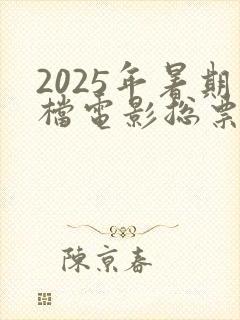 2025年暑期
檔電影總票
陳京春